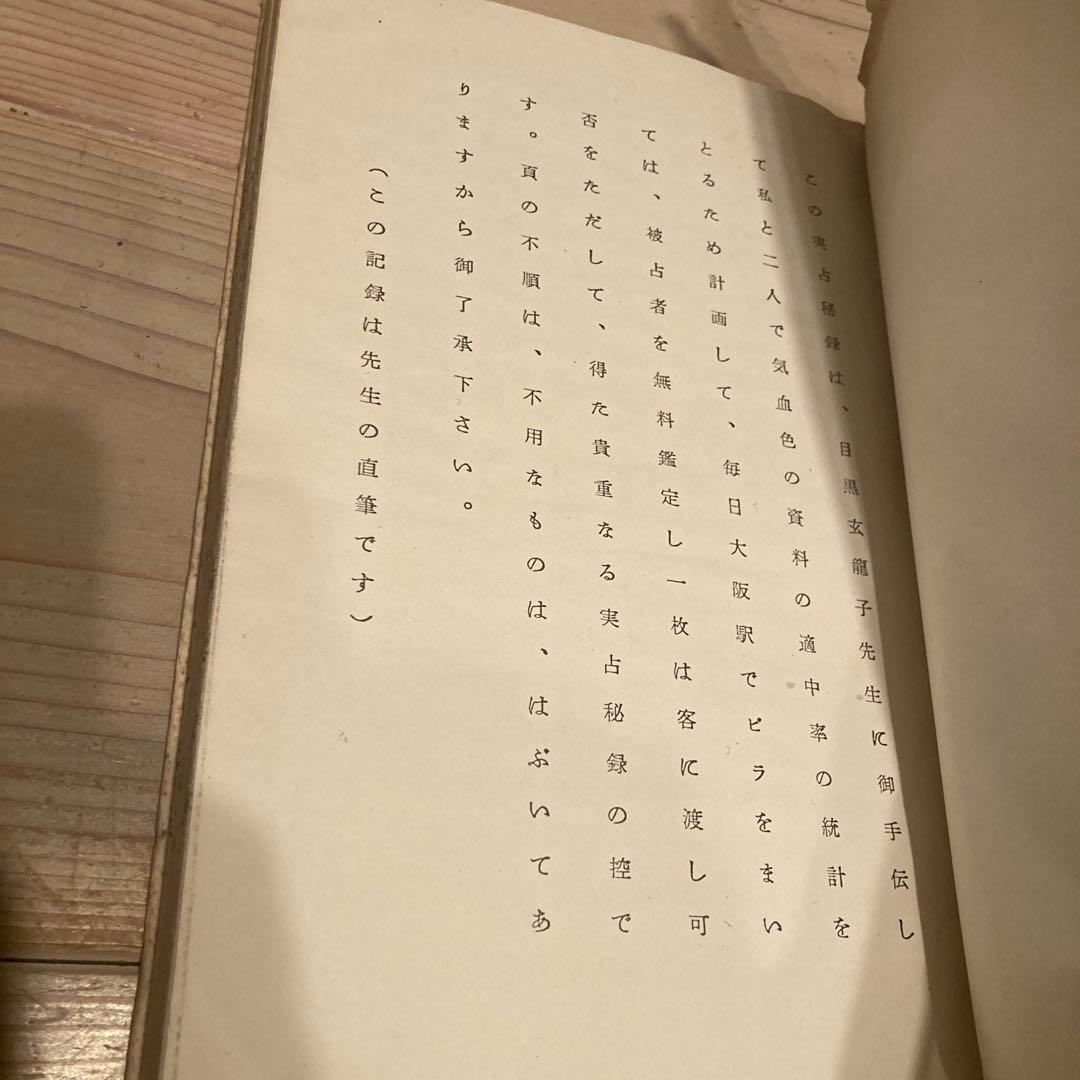 この実占秘録は、目黒玄龍子先生に御手伝し
て私と二人で気血色の資料の適中率の統計を
とるため計画して、毎日大阪駅でビラをまい
ては、被占者を無料鑑定し一枚は客に渡し可
否をただして、得た貴重なる実占秘録の控で
す。頁の不順は、不用なものは、はぶいてあ
りますから御了承下さい。
（この記録は先生の直筆です）